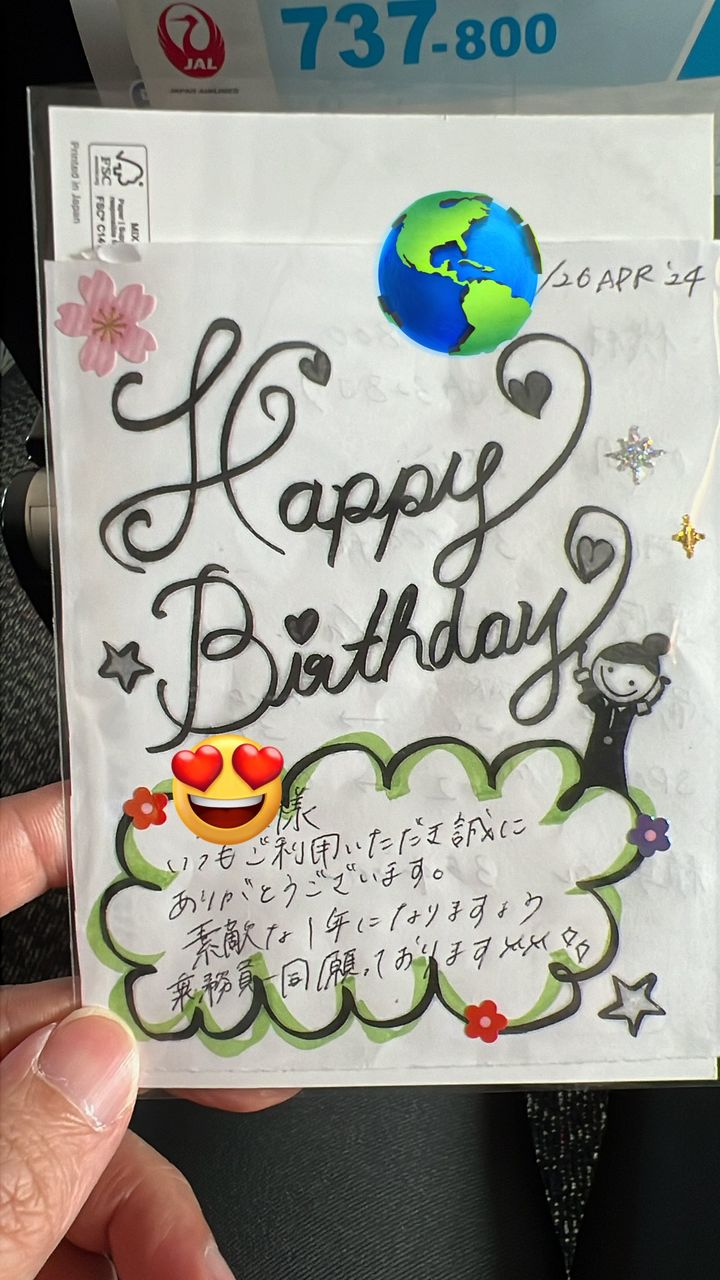 JAL
JAPAN AIRLINES
737-800
Printed in Japan
FSC
MIX
FSC® C14
/26 APR '24
Happy
Birthday
様
いつもご利用いただき誠に
ありがとうございます。
素敵な1年になりますよう
乗務員一同願っております